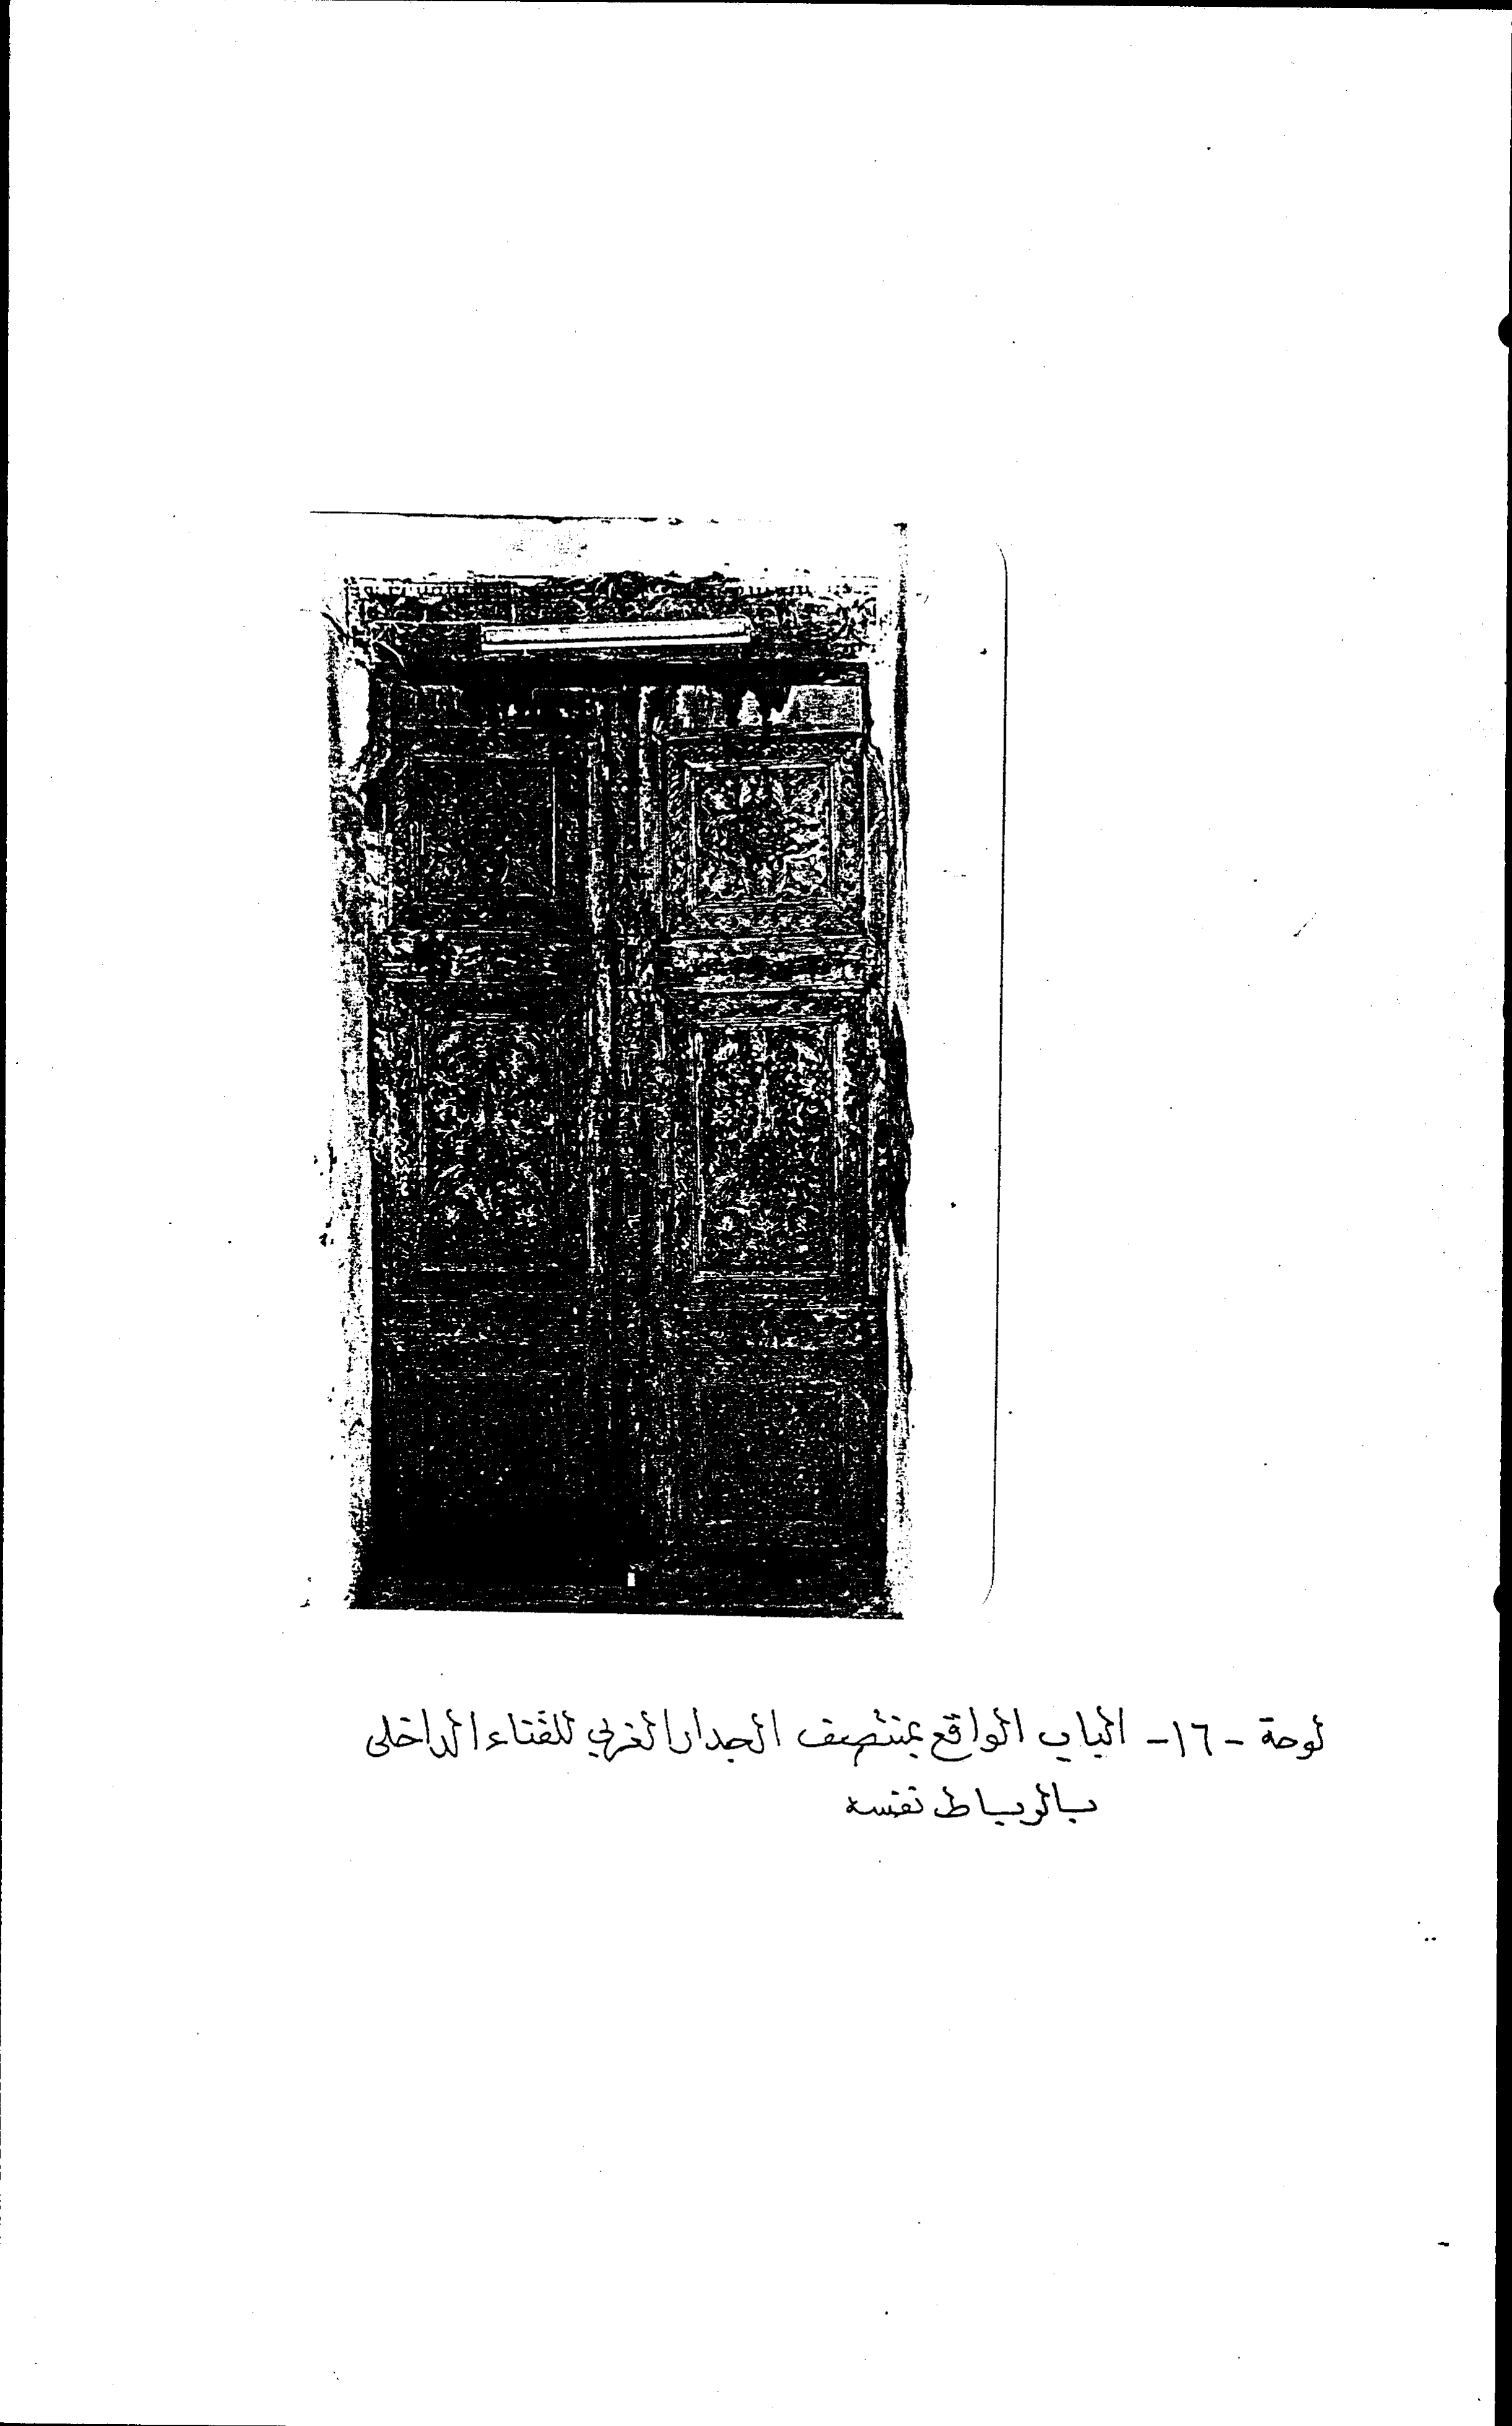 لوحة - ١٦- الباب الواقع بمنتصف الجدار الغربي للفناء الداخلى
بالرباط نفسه